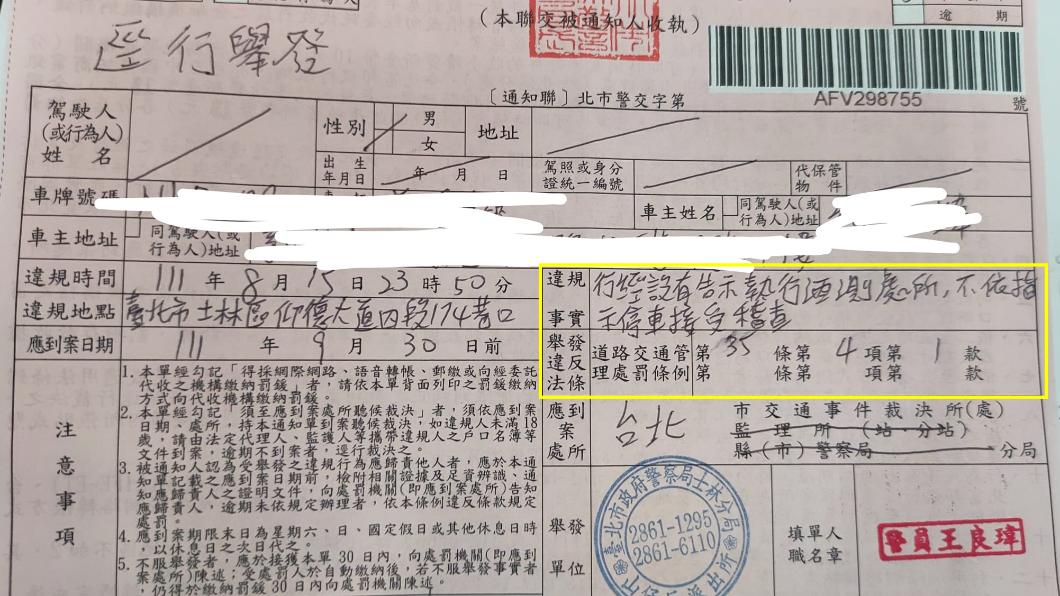 (本聯交被通知人收執)
逾期
逕行舉發
AFV298755
〔通知聯〕北市警交字第 號
駕駛人
(或行為人)
姓名
性別
男
女
地址
出生
年月日
年 月 日
駕照或身分
證統一編號
代保管
物件
車牌號碼
車主姓名
同駕駛人(或
行為人)地址
車主地址
同駕駛人(或
行為人)地址
違規時間
111 年 8 月 15 日 23 時 50 分
違規地點
臺北市士林區仰德大道四段174巷口
應到案日期
111 年 9 月 30 日前
違規
事實
行經設有告示執行酒測處所,不依指
示停車接受稽查
舉發
違反
法條
道路交通管第 35 條第 4 項第 1 款
理處罰條例第 條第 項第 款
注意事項
1. 本單經勾記「得採網際網路、語音轉帳、郵繳或向經委託
代收之機構繳納罰鍰」者,請依本單背面列印之罰鍰繳納
方式向代收機構繳納罰鍰。
2. 本單經勾記「須至應到案處所聽候裁決」者,須依應到案
日期、處所,持本通知單到案聽候裁決,如違規人未滿18
歲,請由法定代理人、監護人等攜帶違規人之戶口名簿等
文件到案,逾期不到案者,逕行裁決之。
3. 被通知人認為受舉發之違規行為應歸責他人者,應於本通
知單記載之應到案日期前,檢附相關證據及足資辨識、通
知應歸責人之證明文件,向處罰機關(即應到案處所)告知
應歸責人,逾期未依規定辦理者,依本條例違反條款規定
處罰。
4. 應到案期限末日為星期六、日、國定假日或其他休息日時
,以休息日之次日代之。
5. 不服舉發者,應於接獲本單30日內,向處罰機關(即應到
案處所)陳述;受處罰人於自動繳納後,若不服舉發事實者
,仍得於繳納罰鍰30日內向處罰機關陳述。
應到
案
處所
台北
市交通事件裁決所(處)
監理所(站、分站)
縣(市)警察局 分局
舉發
單位
臺北市政府警察局士林分局
2861-1295
2861-6110
派出所
填單人
職名章
警員王良瑋